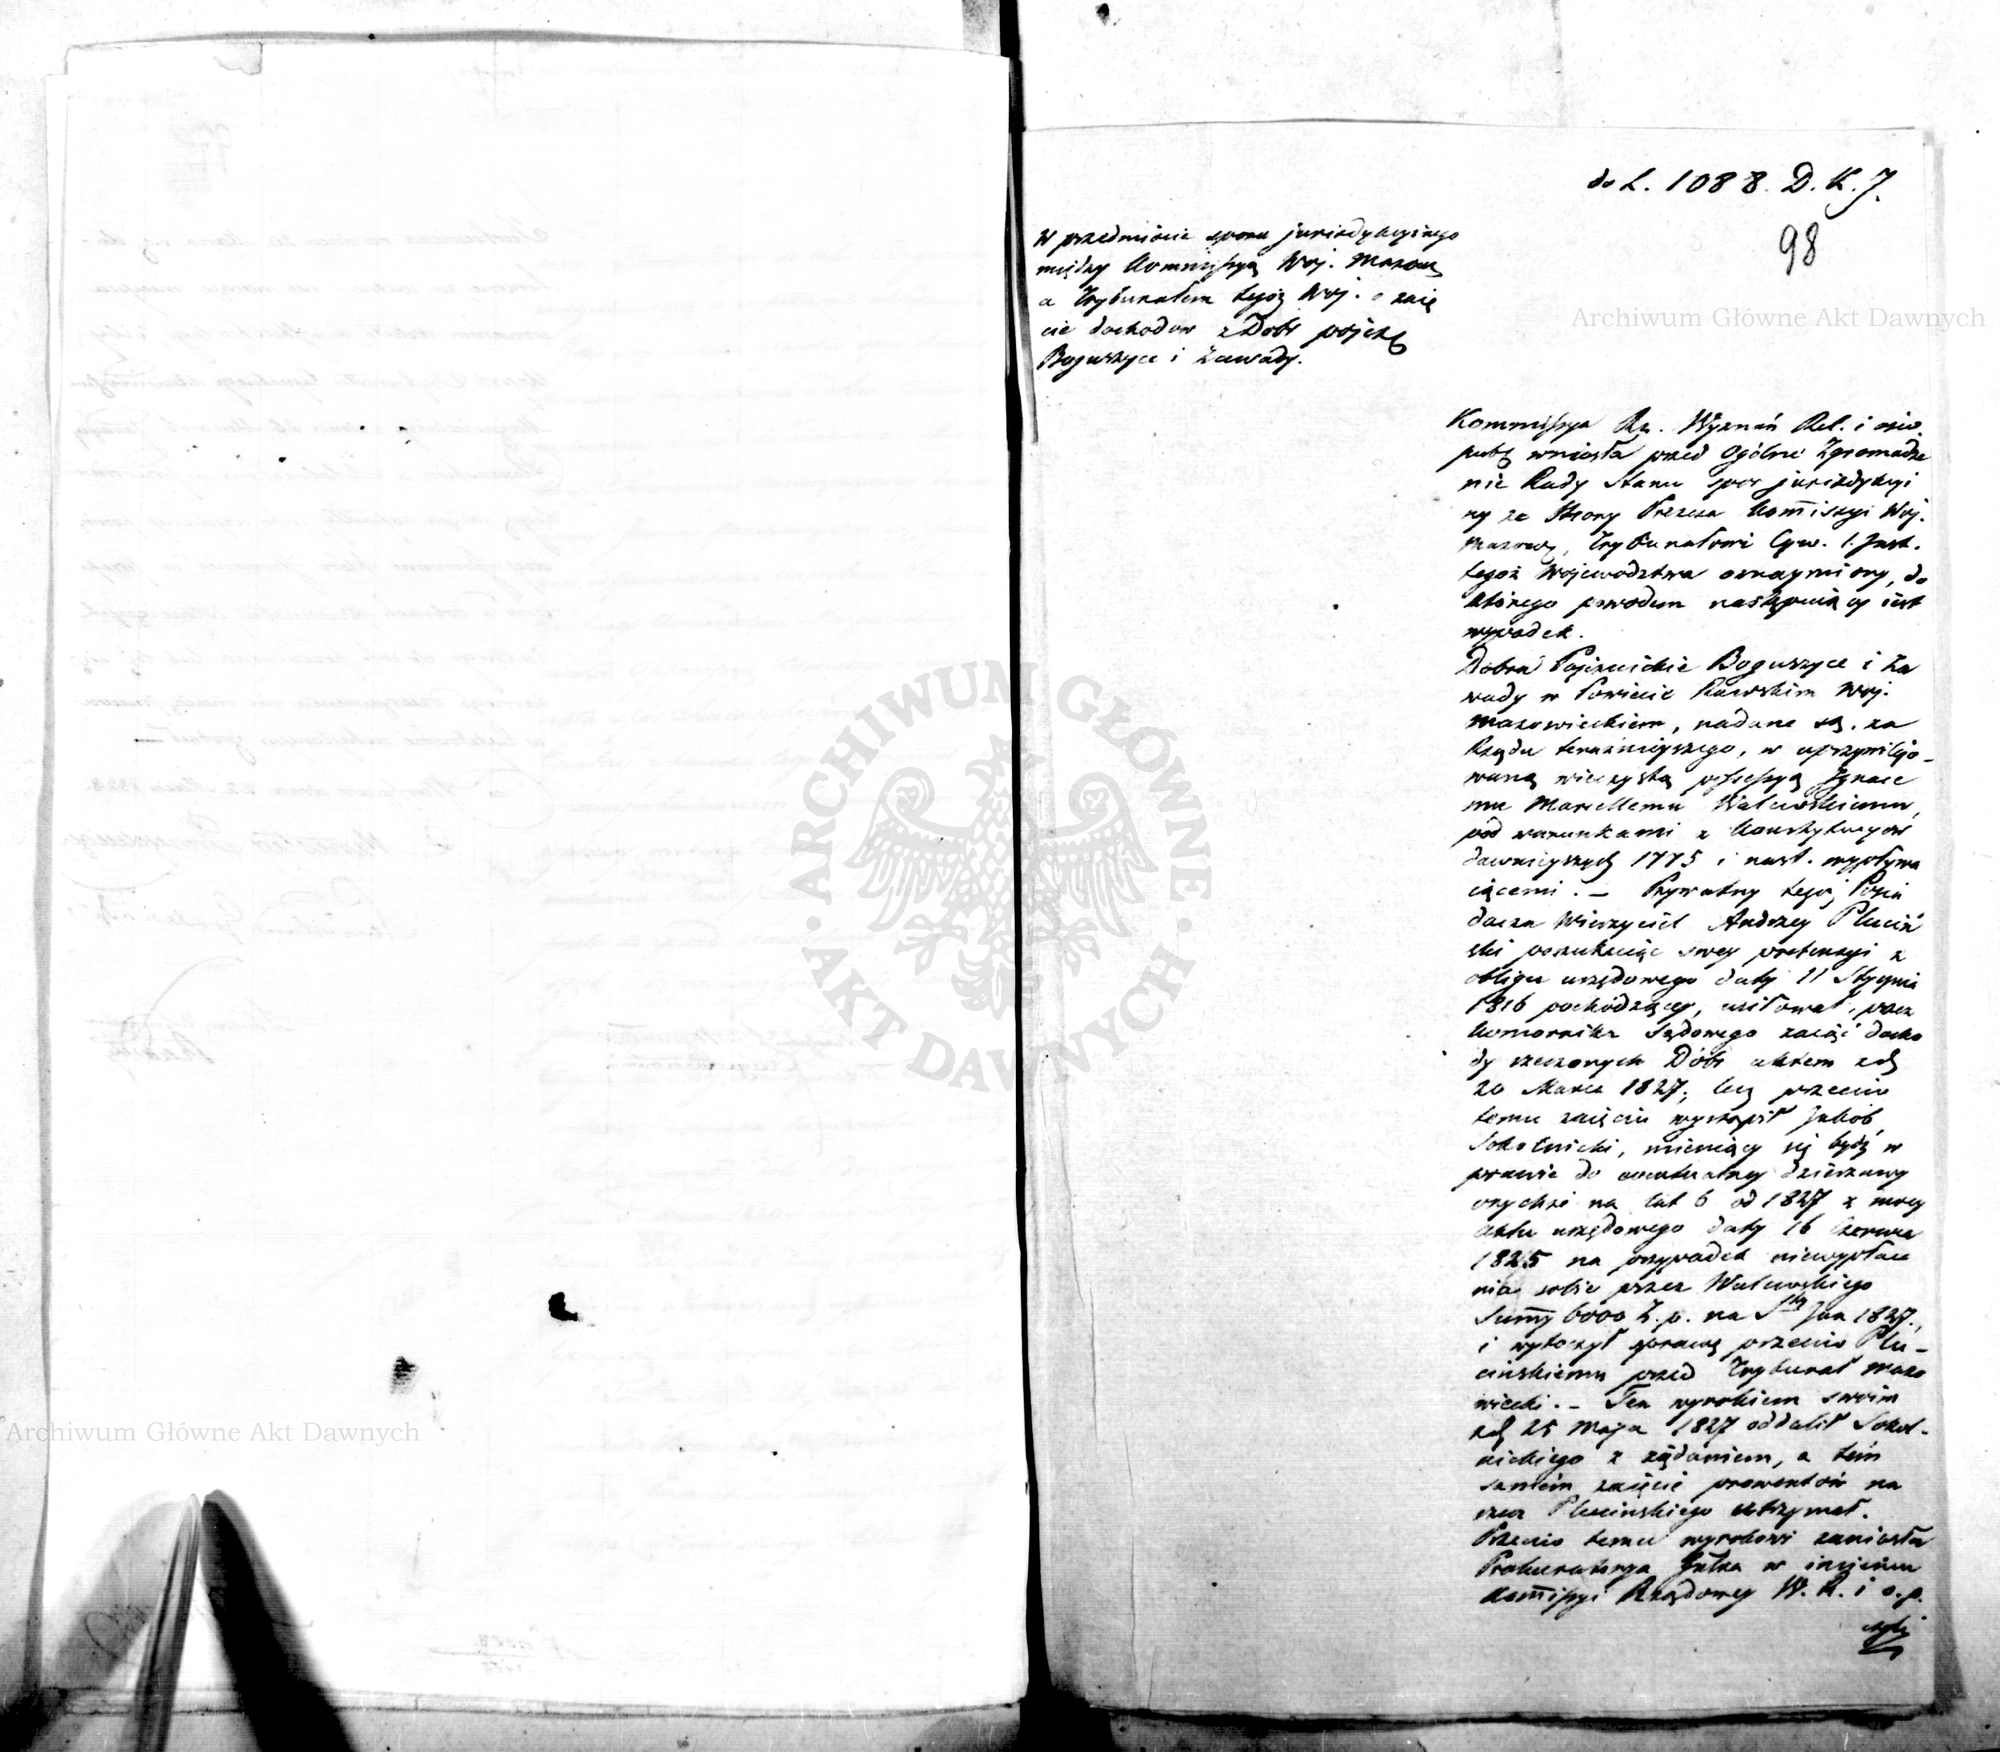 do L. 1088. D. K. J.
98
W przedmiocie sporu jurisdykcyinego
między Kommissyą Woj. Mazow
a Trybunałem tegoż Woj. o zaię
cie dochodów z Dóbr pojez
Boguszyce i Zawady.
Archiwum Główne Akt Dawnych
Kommissya Rz. Wyznań Rel. i oświe.
pub wniosła przed Ogólne Zgromadze
nie Rady Stanu spor jurisdykcyi
ny ze strony Prezesa Kommissyi Woj.
Mazow, Trybunałowi Cyw. 1. Inst.
tegoż Województwa oznaymiony, do
którego powodem następuiący iest
wypadek.
Dobra Pojezuickie Boguszyce i Za
wady w Powiecie Rawskim Woj.
Mazowieckiem, nadane są za
Rządu teraźnieyszego, w uprzywilejo-
waną wieczystą possessyą Ignace
mu Marcellemu Walewskiemu,
pod warunkami z konstytucyów
dawnieyszych 1775 i nast. wypływa
iącemi. – Prywatny tegoż Posia
dacza Wierzyciel Andrzey Pluciń
ski poszukuiąc swey pretensyi z
obligu urzędowego daty 11 Stycznia
1816 pochodzącey, usiłował, przez
Komornika Sądowego zaiąć docho
dy rzeczonych Dóbr aktem z d
20 Marca 1827; lecz przeciw
temu zaięciu wystąpił Jakób
Sokolnicki, mieniący się bydź w
prawie do ewentualney dzierżawy
onychże na lat 6 od 1827 z mocy
aktu urzędowego daty 16 Czerwca
1825 na przypadek niewypłace
nia sobie przez Walewskiego
Summy 6000 Z. p. na Sty Jan 1827.,
i wytoczył sprawę przeciw Plu-
cińskiemu przed Trybunał Mazo
wiecki. – Ten wyrokiem swoim
z d 25 Maja 1827 oddalił Sokol-
nickiego z żądaniem, a tém
samém zaięcie prowentów na
rzecz Plucińskiego utrzymał.
Przeciw temu wyrokowi zaniosła
Prokuratorya Gnlna w imieniu
Kommissyi Rządowey W. R. i o. p.
ARCHIWUM GŁÓWNE
AKT DAWNYCH
Archiwum Główne Akt Dawnych